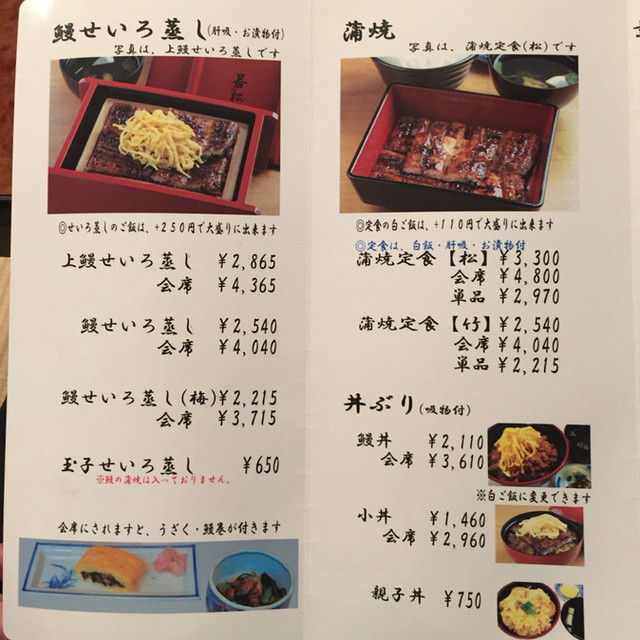 鰻せいろ蒸し(肝吸・お漬物付)
写真は、上鰻せいろ蒸しです
若松
◎せいろ蒸しのご飯は、+250円で大盛りに出来ます
上鰻せいろ蒸し ¥2,865
会席 ¥4,365
鰻せいろ蒸し ¥2,540
会席 ¥4,040
鰻せいろ蒸し(梅)¥2,215
会席 ¥3,715
玉子せいろ蒸し ¥650
※鰻の蒲焼は入っておりません。
会席にされますと、うざく・鰻巻が付きます
蒲焼
写真は、蒲焼定食(松)です
◎定食の白ご飯は、+110円で大盛りに出来ます
◎定食は、白飯・肝吸・お漬物付
蒲焼定食【松】¥3,300
会席 ¥4,800
単品 ¥2,970
蒲焼定食【竹】¥2,540
会席 ¥4,040
単品 ¥2,215
丼ぶり(吸物付)
鰻丼 ¥2,110
会席 ¥3,610
※白ご飯に変更できます
小丼 ¥1,460
会席 ¥2,960
親子丼 ¥750